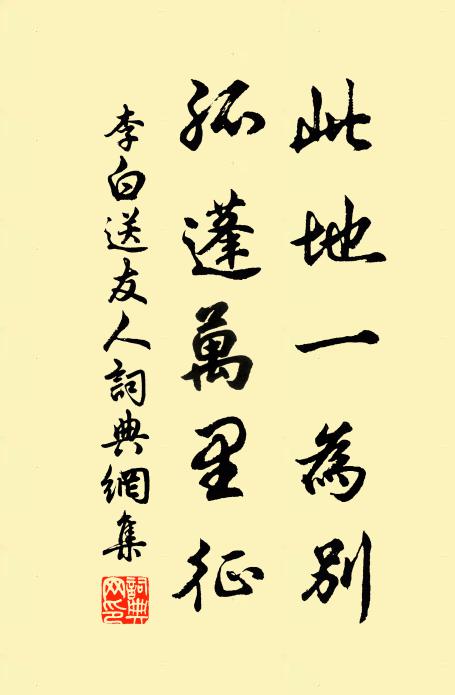 此地一為別
孤蓬萬里征
李白送友人詞典網集
詞典网印